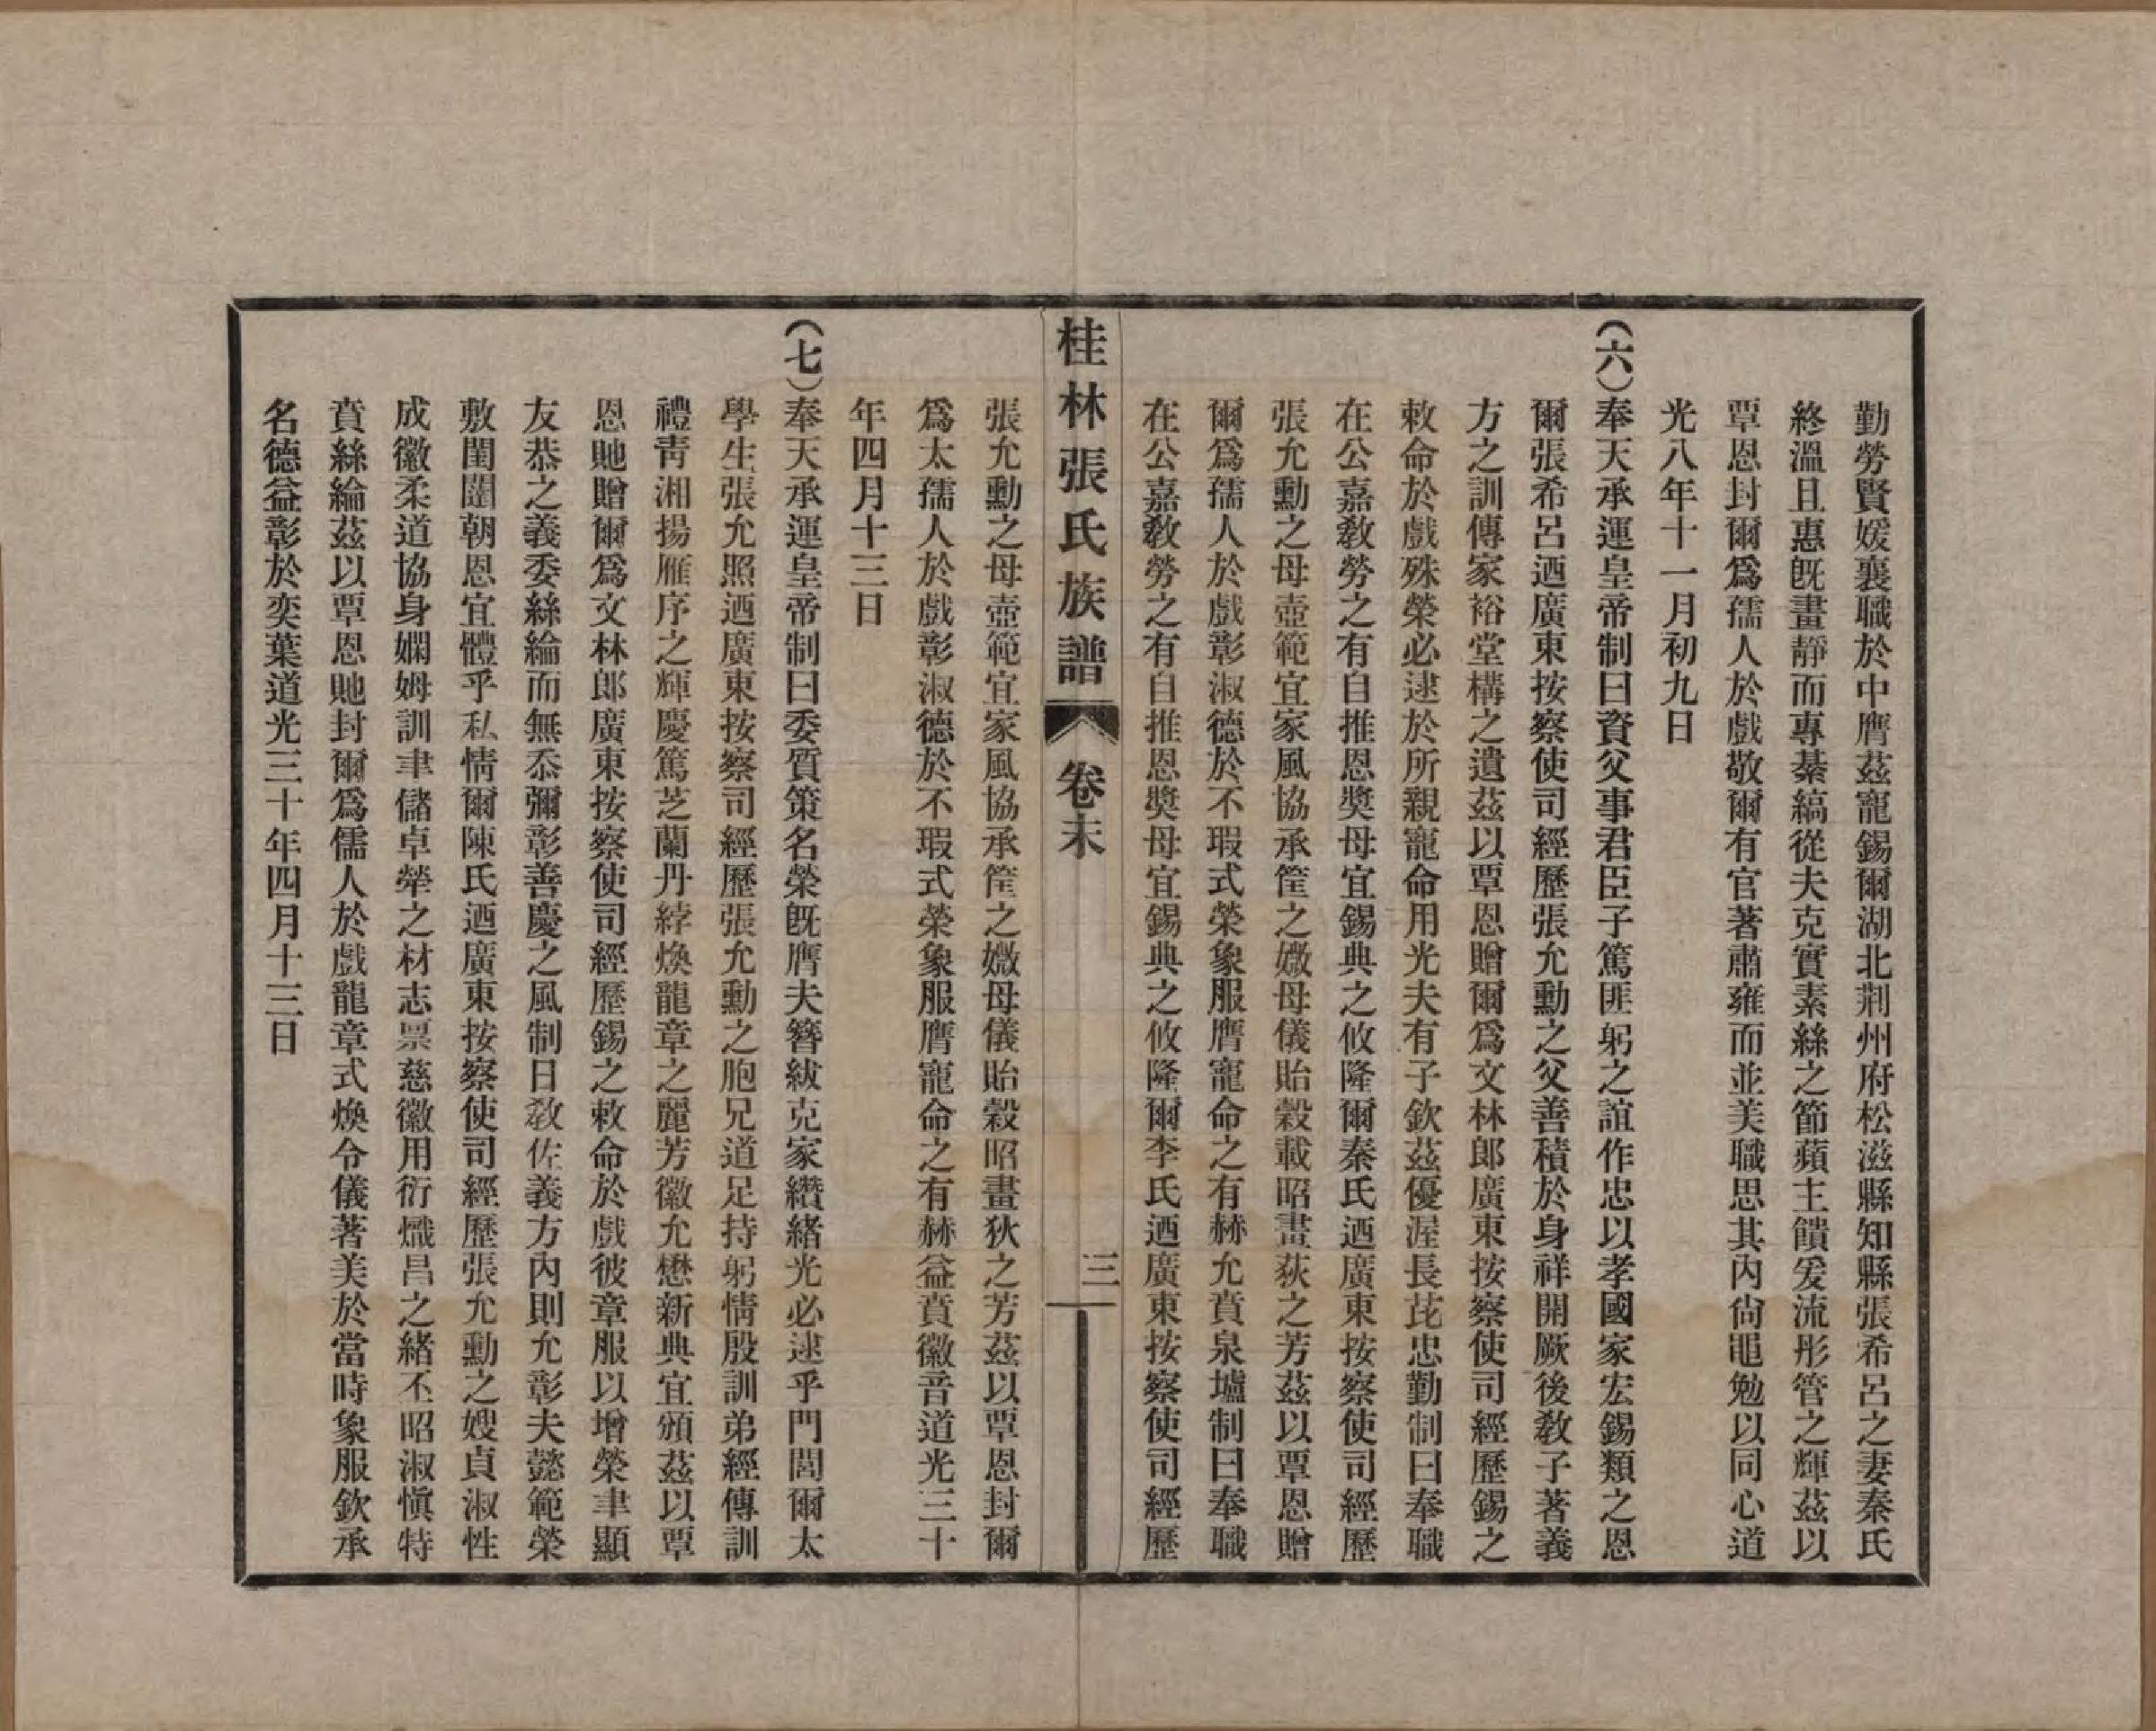 勤勞賢媛襄職於中膺茲寵錫爾湖北荆州府松滋縣知縣張希呂之妻秦氏
終溫且惠旣晝靜而專綦縞從夫克實素絲之節蘋主饋爰流彤管之輝茲以
覃恩封爾爲孺人於戲敬爾有官著肅雍而並美職思其內尙黽勉以同心道
光八年十一月初九日
（六）奉天承運皇帝制曰資父事君臣子篤匪躬之誼作忠以孝國家宏錫類之恩
爾張希呂迺廣東按察使司經歷張允勳之父善積於身祥開厥後敎子著義
方之訓傳家裕堂構之遺茲以覃恩贈爾爲文林郎廣東按察使司經歷錫之
敕命於戲殊榮必逮於所親寵命用光夫有子欽茲優渥長芘忠勤制曰奉職
在公嘉敎勞之有自推恩奬母宜錫典之攸隆爾秦氏迺廣東按察使司經歷
張允勳之母壼範宜家風協承筐之媺母儀貽穀載昭畫荻之芳茲以覃恩贈
爾爲孺人於戲彰淑德於不瑕式榮象服膺寵命之有赫允賁泉壚制曰奉職
在公嘉敎勞之有自推恩奬母宜錫典之攸隆爾李氏迺廣東按察使司經歷
桂林張氏族譜 卷末 三
張允勳之母壼範宜家風協承筐之媺母儀貽穀昭畫狄之芳茲以覃恩封爾
爲太孺人於戲彰淑德於不瑕式榮象服膺寵命之有赫益賁徽音道光三十
年四月十三日
（七）奉天承運皇帝制曰委質策名榮旣膺夫簪紱克家纘緒光必逮乎門閭爾太
學生張允照迺廣東按察司經歷張允勳之胞兄道足持躬情殷訓弟經傳訓
禮靑湘揚雁序之輝慶篤芝蘭丹綍煥龍章之麗芳徽允懋新典宜頒茲以覃
恩貤贈爾爲文林郎廣東按察使司經歷錫之敕命於戲彼章服以增榮聿顯
友恭之義委絲綸而無忝彌彰善慶之風制日敎佐義方內則允彰夫懿範榮
敷閨闥朝恩宜體乎私情爾陳氏迺廣東按察使司經歷張允勳之嫂貞淑性
成徽柔道協身嫻姆訓聿儲卓犖之材志禀慈徽用衍熾昌之緖丕昭淑愼特
賁絲綸茲以覃恩貤封爾爲儒人於戲龍章式煥令儀著美於當時象服欽承
名德益彰於奕葉道光三十年四月十三日